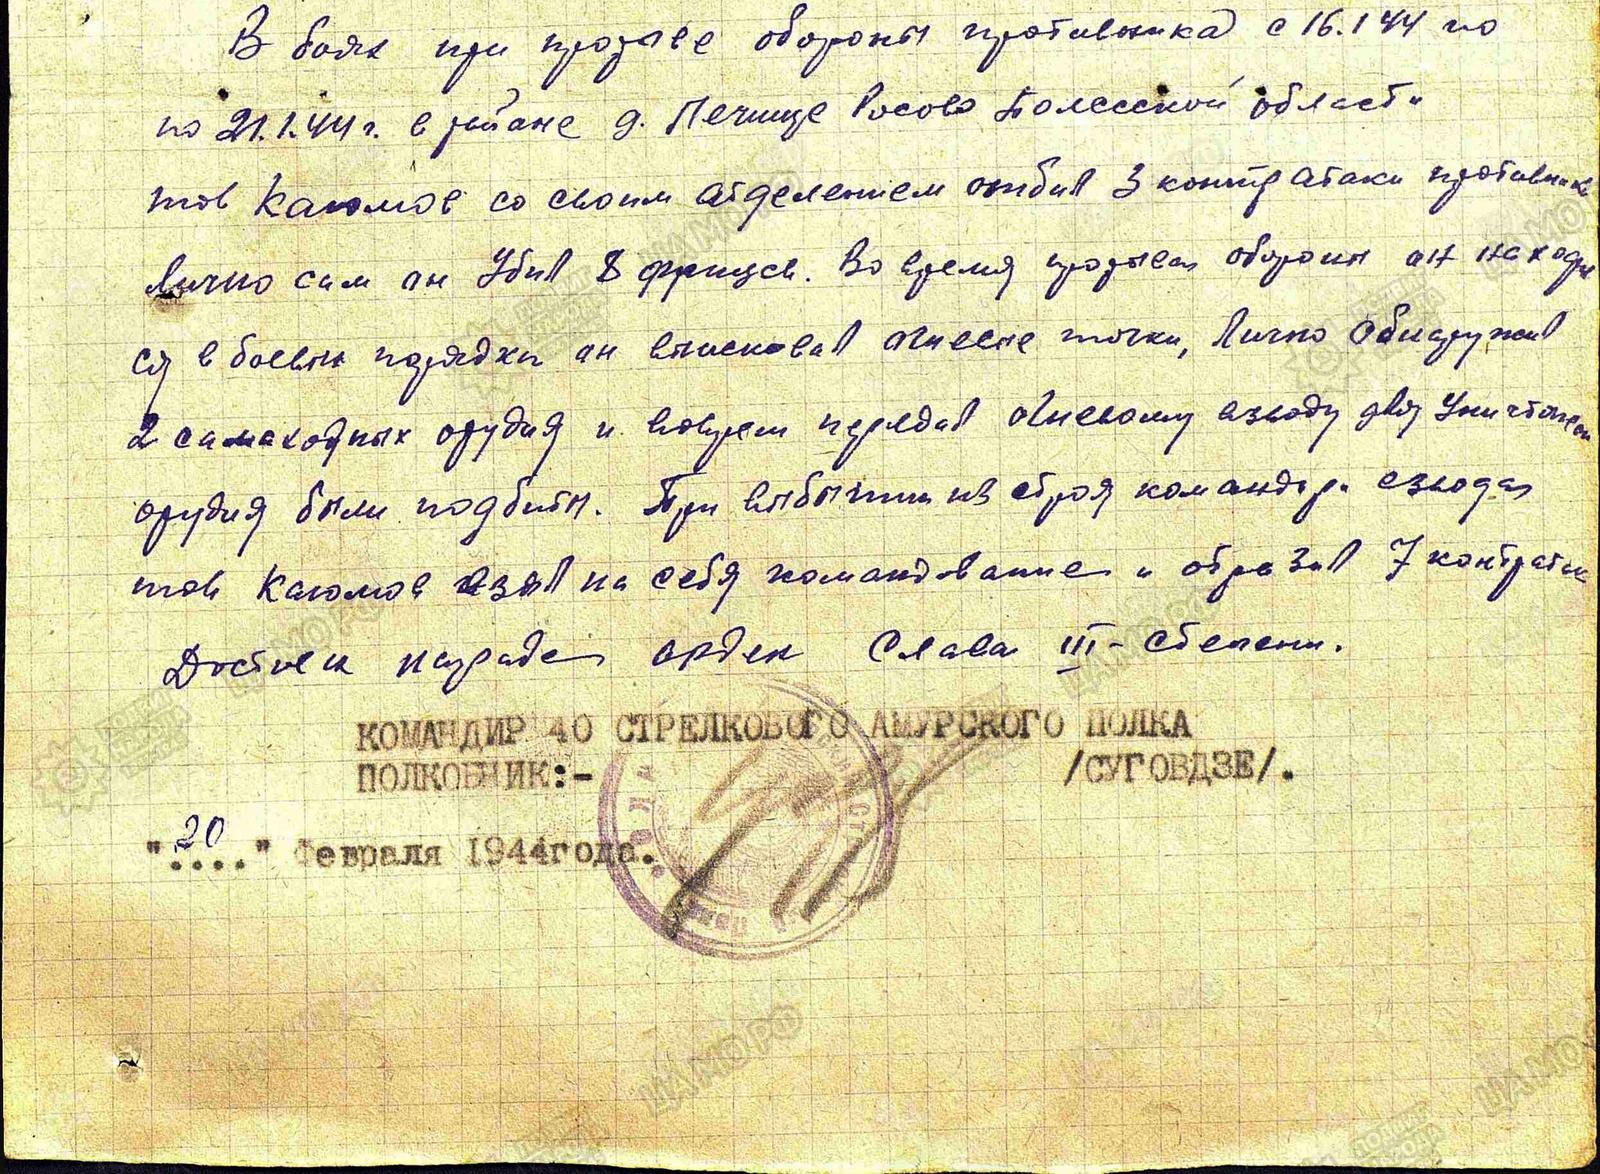 В боях при прорыве обороны противника с 16.1 44 по
по 21.1.44 г. в районе д. Печище Росово Полесской области
тов Каюмов со своим отделением отбил 3 контратаки противника
Лично сам он Убил 8 фрицев. Во время прорыва обороны он находи
ся в боевых порядках он выисковал огневые точки, Лично Обнаружил
2 самаходных орудия и вовремя передал огневому взводу для Уничтожен
орудия были подбиты. При выбытии из строя командира взвода
тов Каюмов взял на себя командование и отразил 7 контратак
Достоен награде орден Слава III-степени.
КОМАНДИР 40 СТРЕЛКОВОГО АМУРСКОГО ПОЛКА
ПОЛКОВНИК:- /СУГОВДЗЕ/.
"20...." Февраля 1944года.
ЦАМО РФ
ПОДВИГ НАРОДА